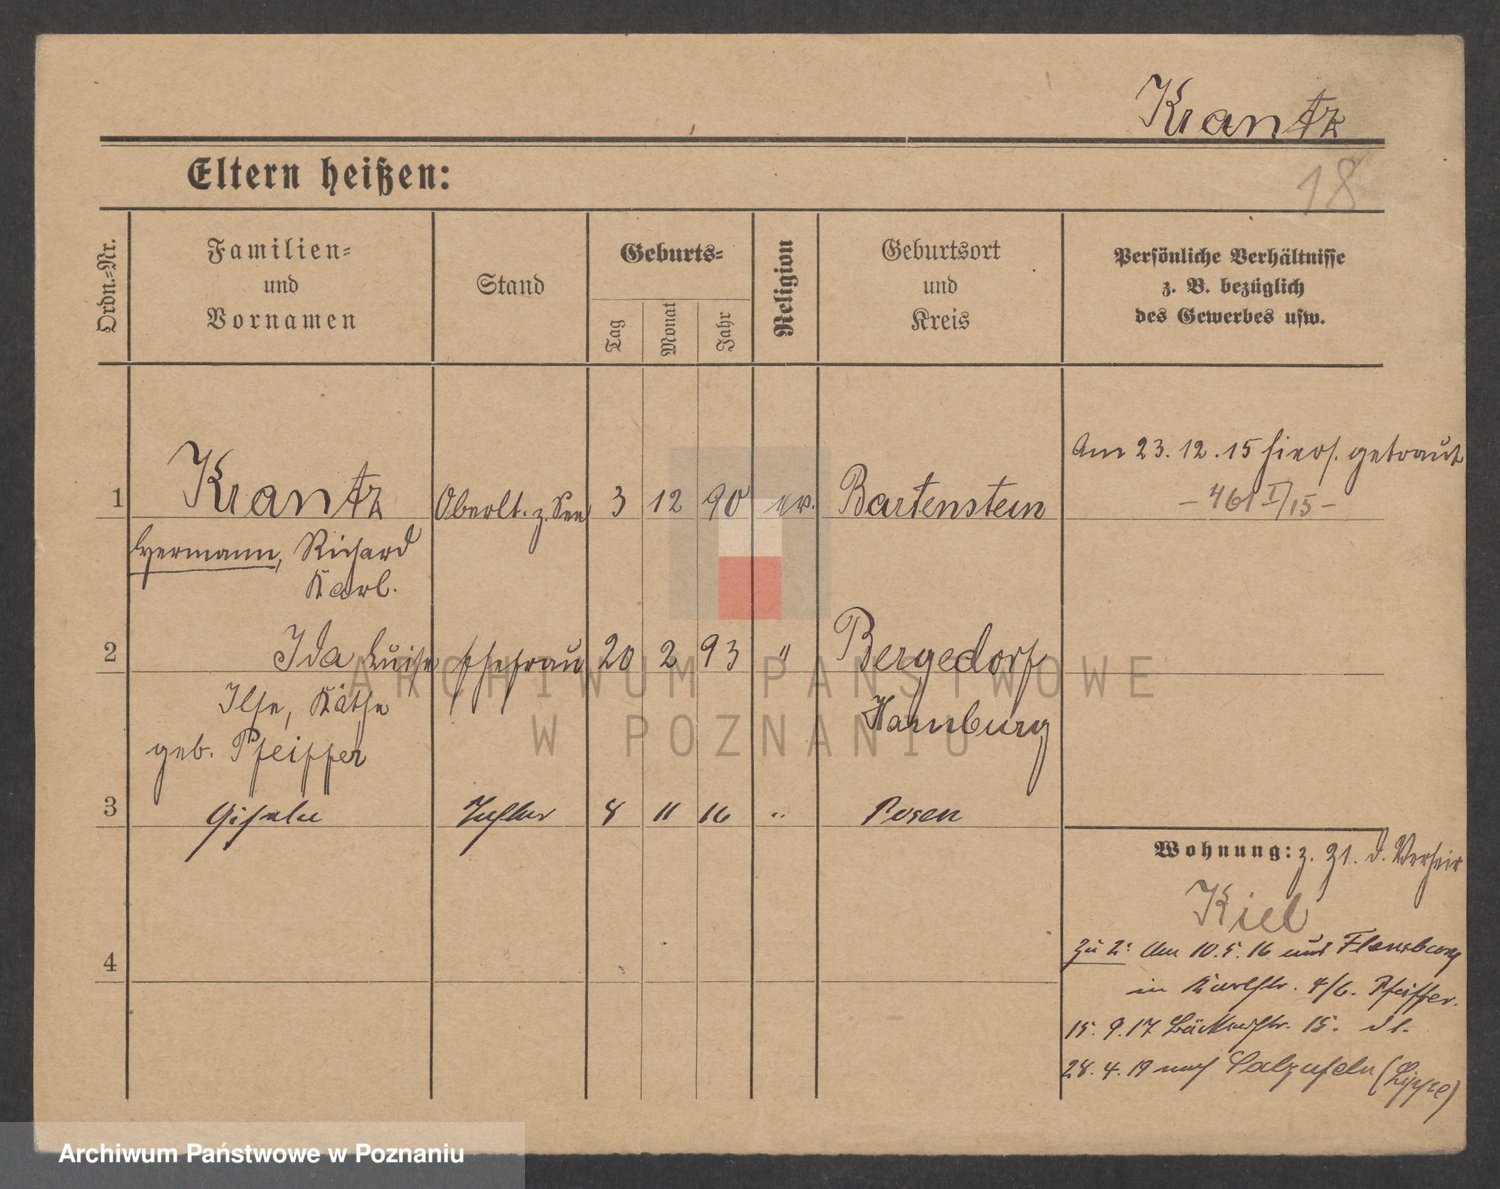 Krantz
18
Eltern heißen:
Ordn.-Nr.
Familien-
und
Vornamen
Stand
Geburts-
Tag
Monat
Jahr
Religion
Geburtsort
und
Kreis
Persönliche Verhältnisse
z. B. bezüglich
des Gewerbes usw.
Am 23.12.15 hiers. getraut
- 461 I/15 -
1 Krantz Oberlt. z. See 3 12 90 ev. Bartenstein
Hermann, Richard
Karl.
2 Ida Luise Ehefrau 20 2 93 " Bergedorf
Ilse, Käthe Hamburg
geb. Pfeiffer
3 Gisela Tochter 8 11 16 " Posen
4
Wohnung: z. Zt. d. Verheir
Kiel
Zu 2: Am 10.5.16 aus Flensburg
in Karlstr. 4/6. Pfeiffer.
15.9.17 Bäckerstr. 15. ds.
28.4.19 nach Salzufeln (Lippe)
ARCHIWUM PAŃSTWOWE
W POZNANIU
Archiwum Państwowe w Poznaniu